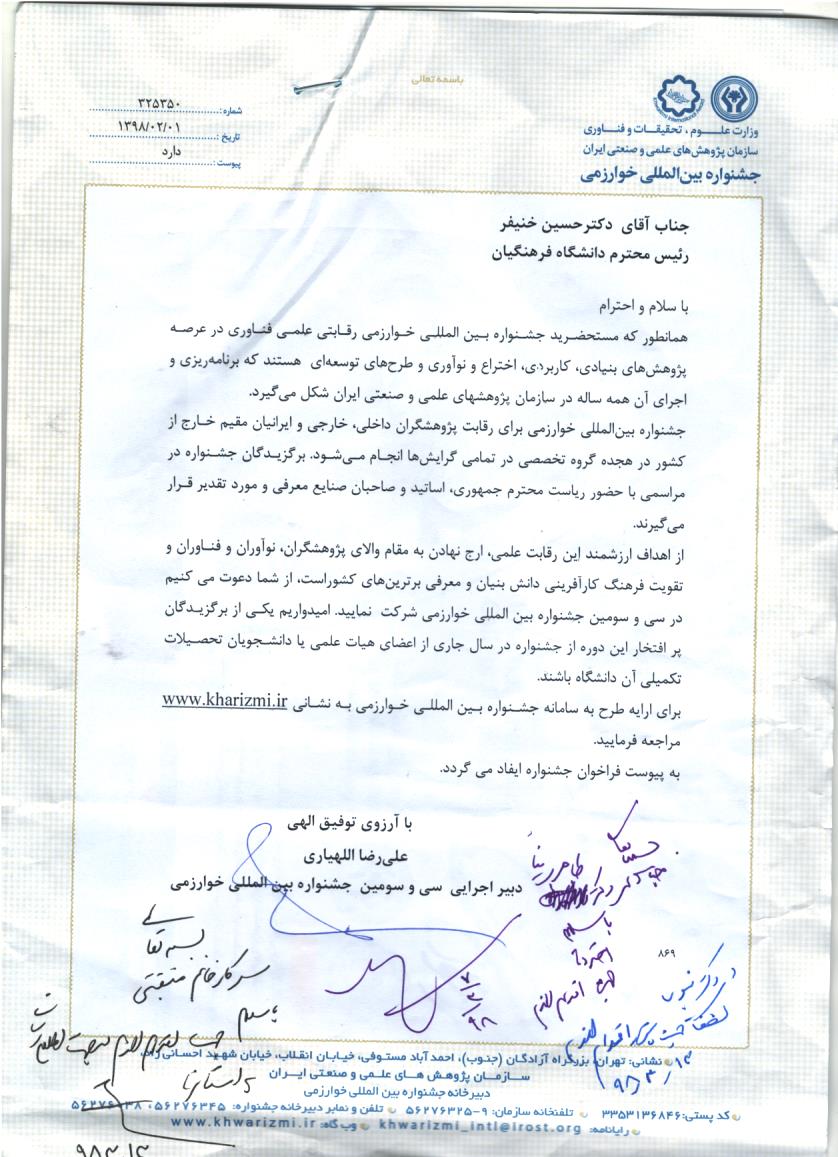 باسمه تعالی
وزارت علـــوم، تحقیقـات و فنـاوری
سازمان پژوهش‌های علمی و صنعتی ایران
جشنواره بین‌المللی خوارزمی
شماره: ۳۲۵۳۵۰
تاریخ: ۱۳۹۸/۰۲/۰۱
پیوست: دارد
جناب آقای دکترحسین خنیفر
رئیس محترم دانشگاه فرهنگیان
با سلام و احترام
همانطور که مستحضرید جشنواره بین المللی خوارزمی رقابتی علمی فناوری در عرصه
پژوهش‌های بنیادی، کاربردی، اختراع و نوآوری و طرح‌های توسعه‌ای هستند که برنامه‌ریزی و
اجرای آن همه ساله در سازمان پژوهشهای علمی و صنعتی ایران شکل می‌گیرد.
جشنواره بین‌المللی خوارزمی برای رقابت پژوهشگران داخلی، خارجی و ایرانیان مقیم خارج از
کشور در هجده گروه تخصصی در تمامی گرایش‌ها انجام می‌شود. برگزیدگان جشنواره در
مراسمی با حضور ریاست محترم جمهوری، اساتید و صاحبان صنایع معرفی و مورد تقدیر قرار
می‌گیرند.
از اهداف ارزشمند این رقابت علمی، ارج نهادن به مقام والای پژوهشگران، نوآوران و فناوران و
تقویت فرهنگ کارآفرینی دانش بنیان و معرفی برترین‌های کشوراست، از شما دعوت می کنیم
در سی و سومین جشنواره بین المللی خوارزمی شرکت نمایید. امیدواریم یکی از برگزیدگان
پر افتخار این دوره از جشنواره در سال جاری از اعضای هیات علمی یا دانشجویان تحصیلات
تکمیلی آن دانشگاه باشند.
برای ارایه طرح به سامانه جشنواره بین المللی خوارزمی به نشانی www.kharizmi.ir
مراجعه فرمایید.
به پیوست فراخوان جشنواره ایفاد می گردد.
با آرزوی توفیق الهی
علی‌رضا اللهیاری
دبیر اجرایی سی و سومین جشنواره بین المللی خوارزمی
۸۶۹
بسمه تعالی
سرکار خانم
با سلام
نشانی: تهران، بزرگراه آزادگان (جنوب)، احمد آباد مستوفی، خیابان انقلاب، خیابان شهید احسانی راد،
سازمان پژوهش های علمی و صنعتی ایران
دبیرخانه جشنواره بین المللی خوارزمی
کد پستی: ۳۳۵۳۱۳۶۸۴۶ تلفنخانه سازمان: ۹-۵۶۲۷۶۳۲۵ تلفن و نمابر دبیرخانه جشنواره: ۵۶۲۷۶۳۴۵،
رایانامه: khwarizmi_intl@irost.org وب گاه: www.khwarizmi.ir